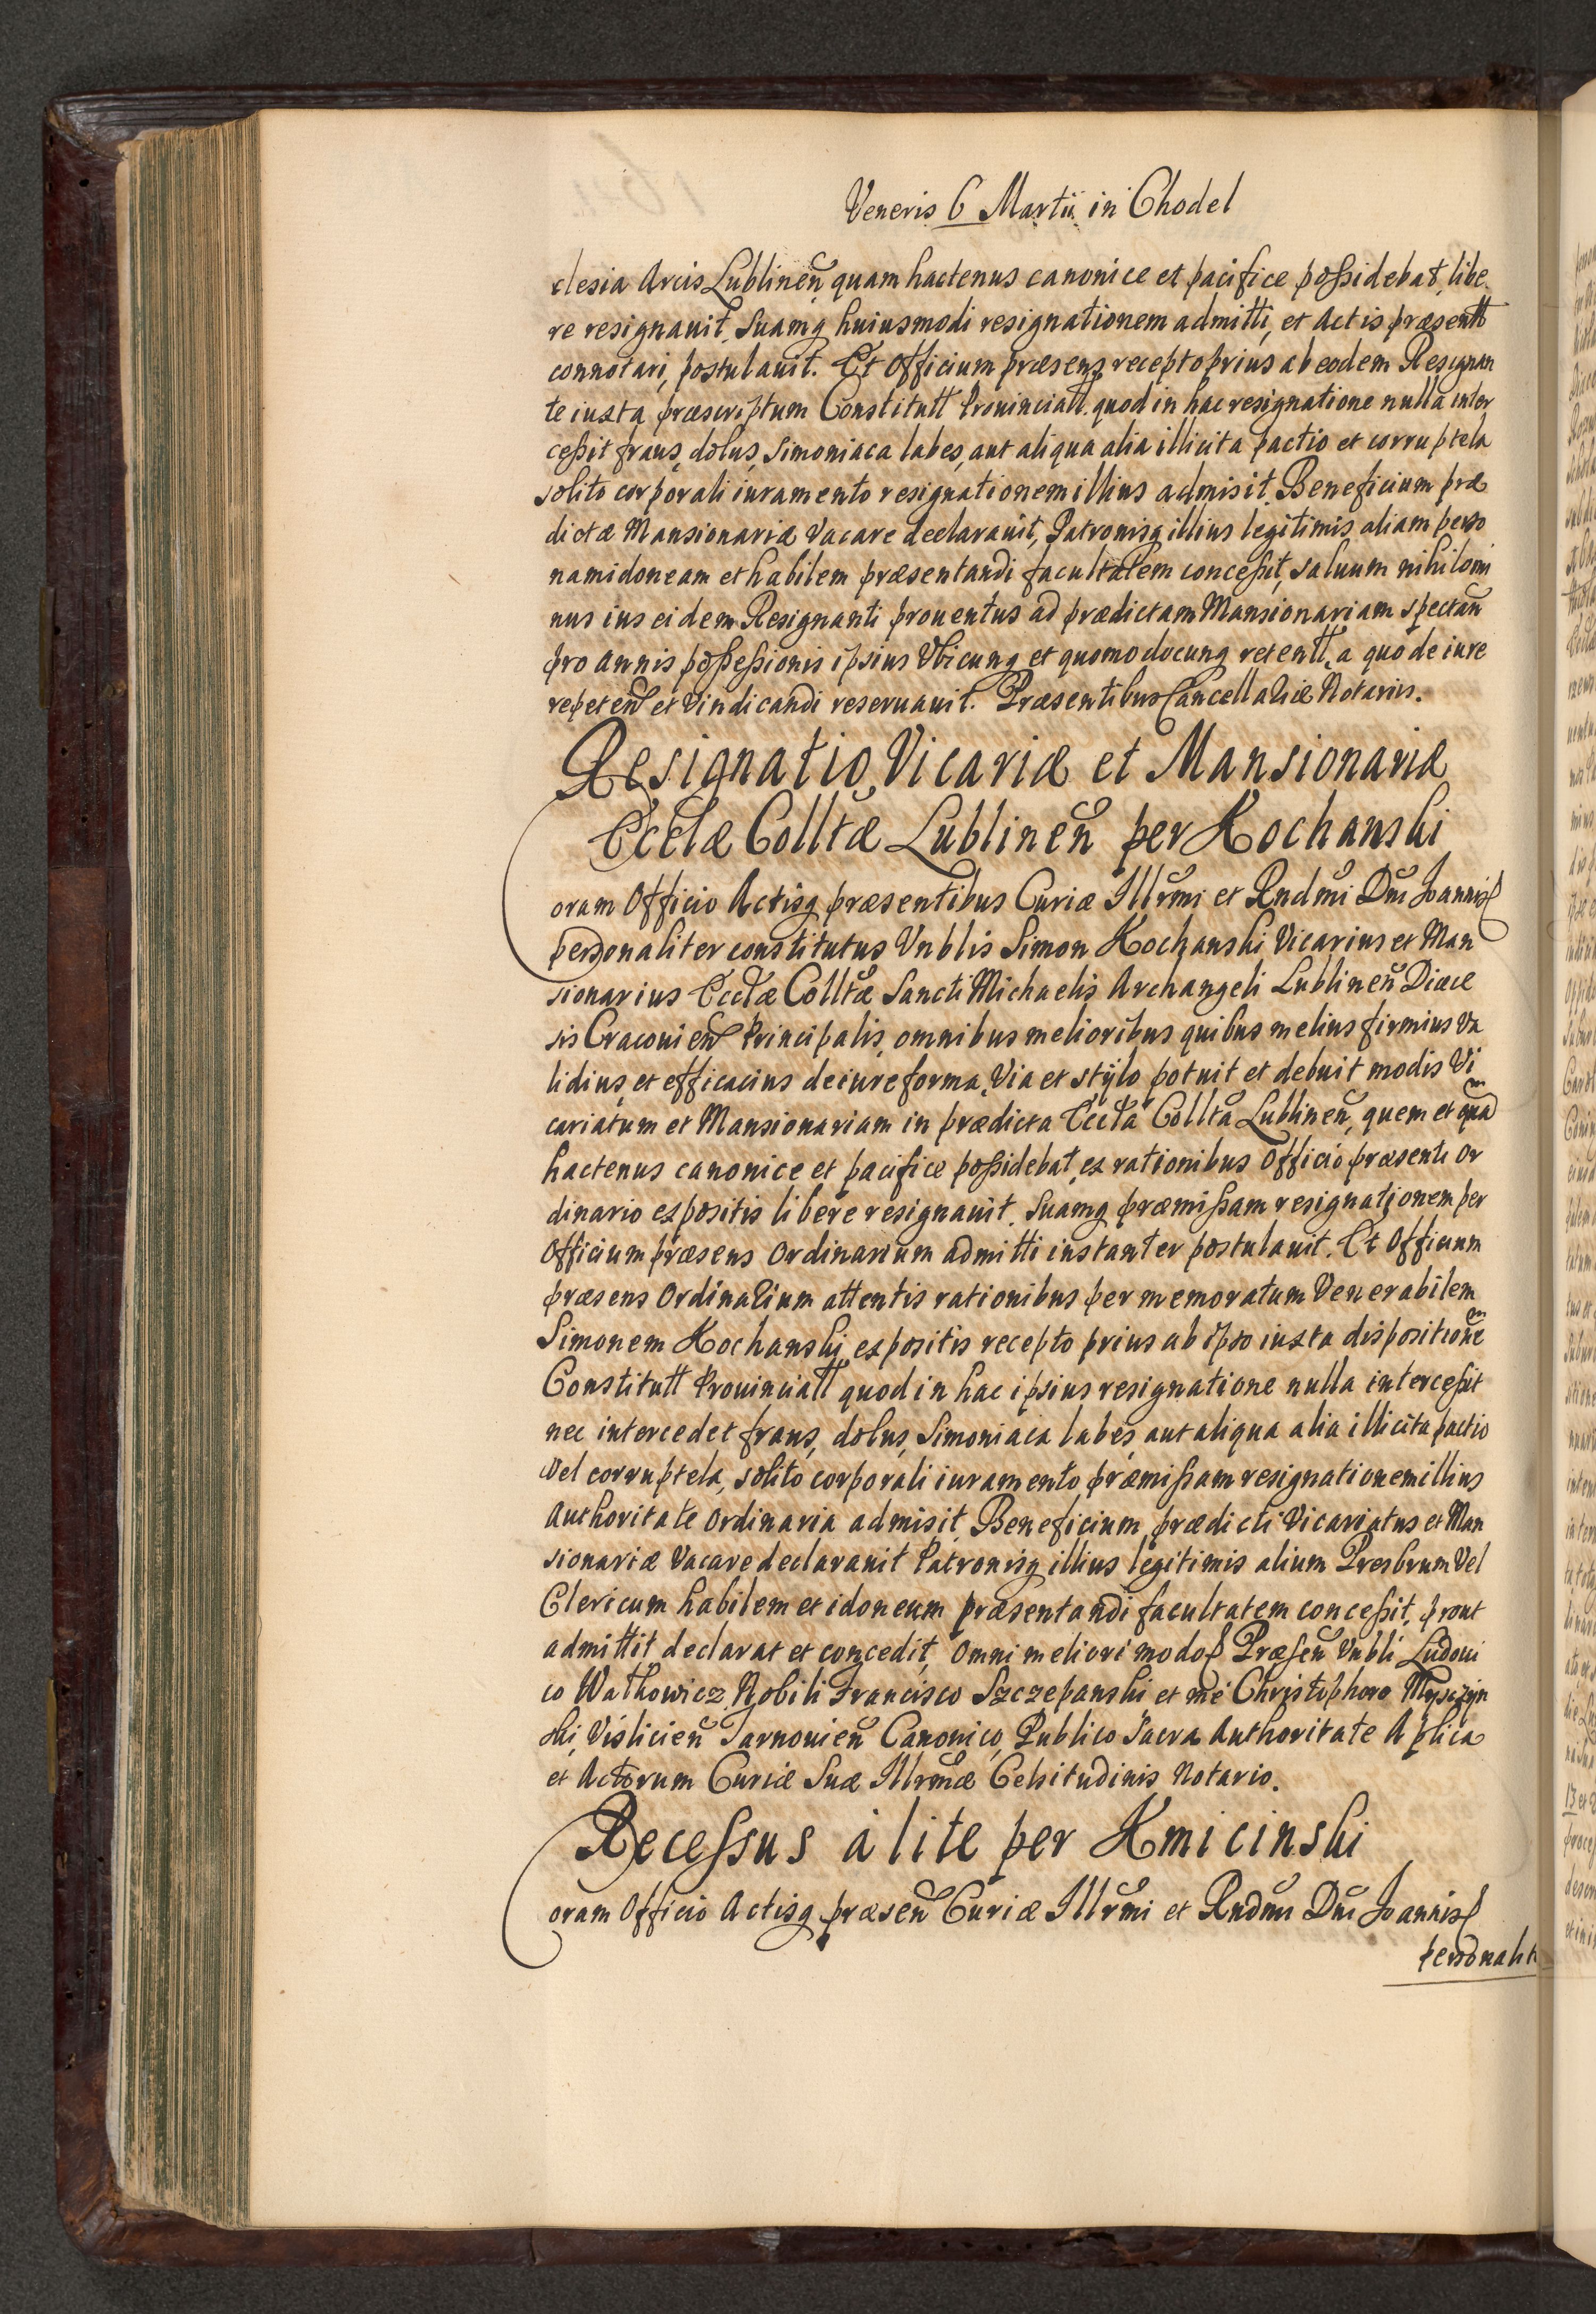 Veneris 6 Martii in Chodel
clesia Arcis Lublineñ quam hactenus canonice et pacifice possidebat, libe
re resignauit, Suamq huiusmodi resignationem admitti, et Actis præsentt
connotari, postulauit. Et Officium præsens recepto prius ab eodem Resignan
te iuxta præscriptum Constitutt Prouinciall. quod in hac resignatione nulla inter
cessit fraus, dolus, Simoniaca labes, aut aliqua alia illicita pactio et corruptela
solito corporali iuramento resignationem illius admisit, Beneficium præ
dictæ Mansionariæ Vacare declarauit, Patronisq illius legitimis aliam perso
nam idoneam et habilem præsentandi facultatem concessit, saluum nihilomi
nus ius eidem Resignanti prouentus ad prædictam Mansionariam spectañ
pro annis possessionis ipsius Vbicunq et quomodocunq retentt, a quo de iure
repeteñ et Vindicandi reseruauit. Præsentibus Cancellariæ Notariis.
Resignatio Vicariæ et Mansionariæ
Ecclæ Colltæ Lublineñ per Kochanski
Coram Officio Actisq præsentibus Curiæ Illrmi et Rndmi Dni Joannis
personaliter constitutus Vnblis Simon Kochanski Vicarius et Man
sionarius Ecclæ Colltæ Sancti Michaelis Archangeli Lublineñ Diæce
sis Cracouieñ Principalis, omnibus melioribus quibus melius firmius Va
lidius, et efficacius de iure forma, Via et stÿlo potuit et debuit modis Vi
cariatum et Mansionariam in prædicta Eccla Collta Lublineñ, quem et quam
hactenus canonice et pacifice possidebat, ex rationibus Officio præsenti or
dinario expositis libere resignauit. Suamq præmissam resignationem per
Officium præsens Ordinarium admitti instanter postulauit. Et Officium
præsens Ordinarium attentis rationibus per memoratum Venerabilem
Simonem Kochanski expositis recepto prius ab ipso iuxta dispositionem
Constitutt Prouinciall quod in hac ipsius resignatione nulla intercessit
nec intercedet fraus, dolus, Simoniaca labes, aut aliqua alia illicita pactio
Vel corruptela, solito corporali iuramento præmissam resignationem illius
Authoritate Ordinaria admisit, Beneficium prædicti Vicariatus et Man
sionariæ Vacare declarauit Patronisq illius legitimis alium Presbrum Vel
Clericum habilem et idoneum præsentandi facultatem concessit, prout
admittit declarat et concedit, Omni meliori modo Præseñ Vnbli Ludoui
co Wathowicz Nobili Francisco Szczepanski et me Christophoro
ski, Vislicieñ Tarnouieñ Canonico, Publico Sacra Authoritate Aplica
et Actorum Curiæ Suæ Illrmæ Celsitudinis Notario.
Recessus à lite per Kmicinski
Coram Officio Actisq præseñ Curiæ Illrmi et Rndmi Dni Joannis